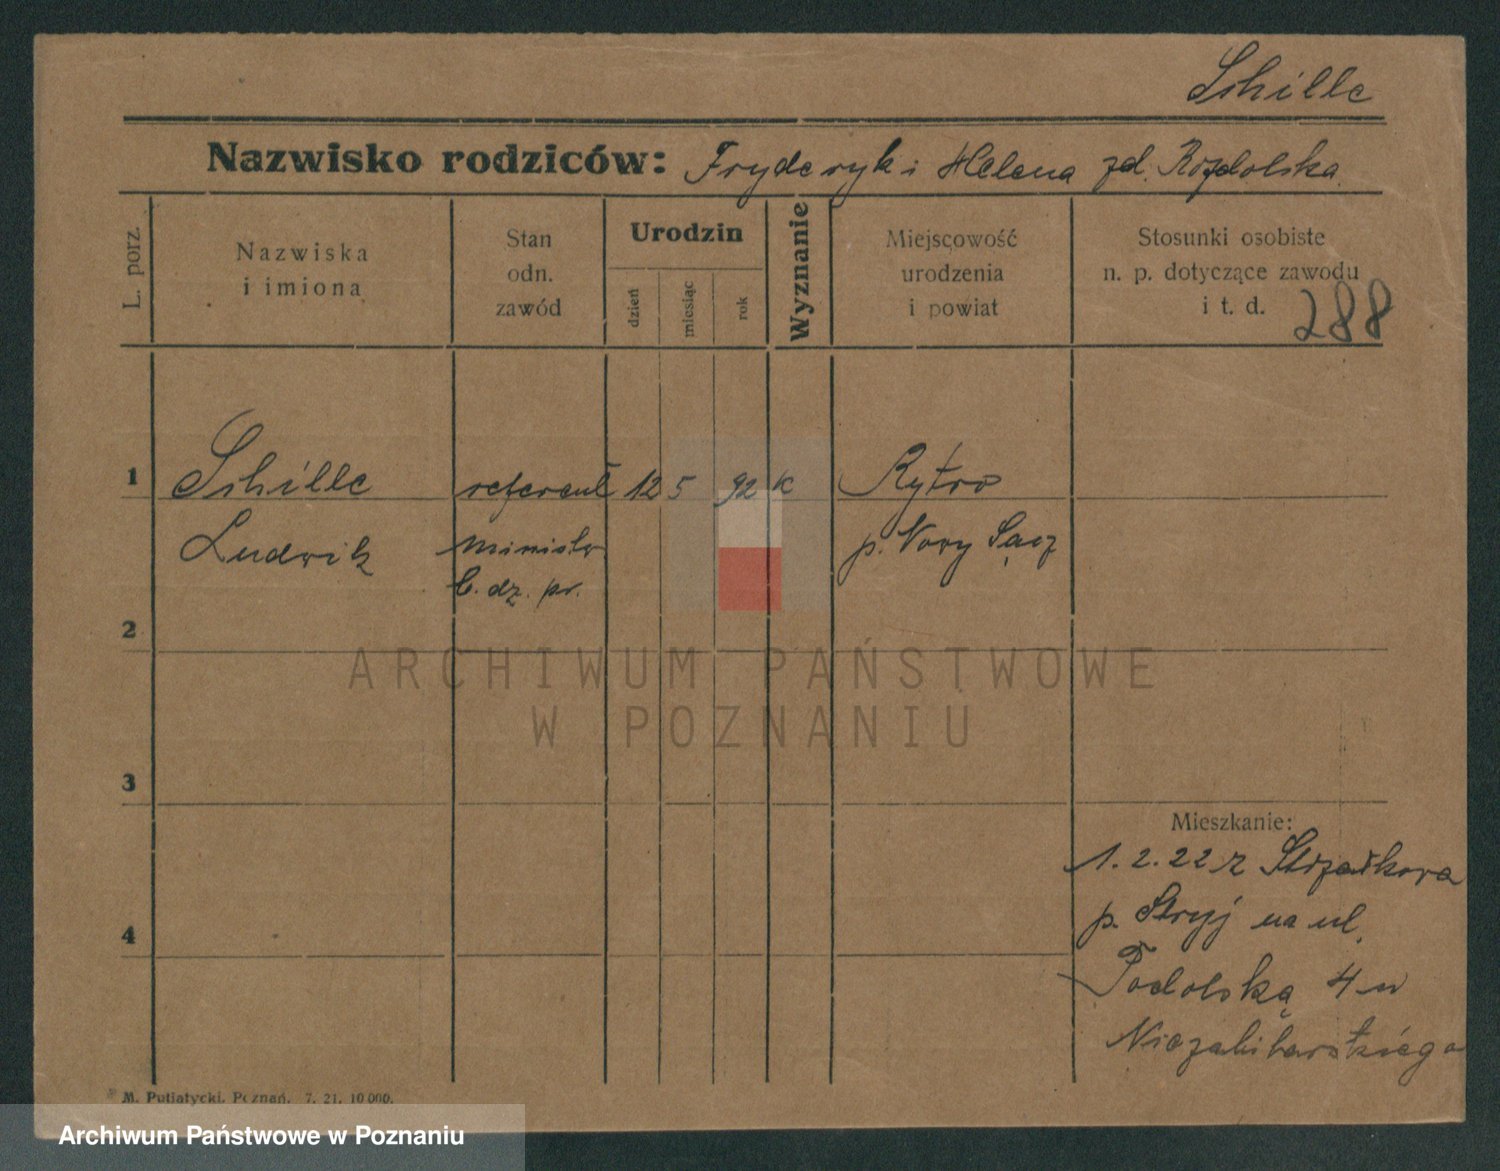 Schille
Nazwisko rodziców: Fryderyk i Helena zd. Rozdolska
L. porz.
Nazwiska
i imiona
Stan
odn.
zawód
Urodzin
dzień
miesiąc
rok
Wyznanie
Miejscowość
urodzenia
i powiat
Stosunki osobiste
n. p. dotyczące zawodu
i t. d.
288
1 Schille referent 12 5 92 k Rytro
Ludwik p. Nowy Sącz
b. dz. pr.
2
3
4
Mieszkanie:
1.2.22 z Strzałkowa
p. Stryj na ul.
Podolską 4 u
ARCHIWUM PAŃSTWOWE
W POZNANIU
M. Putiatycki, Poznań. 7. 21. 10 000.
Archiwum Państwowe w Poznaniu